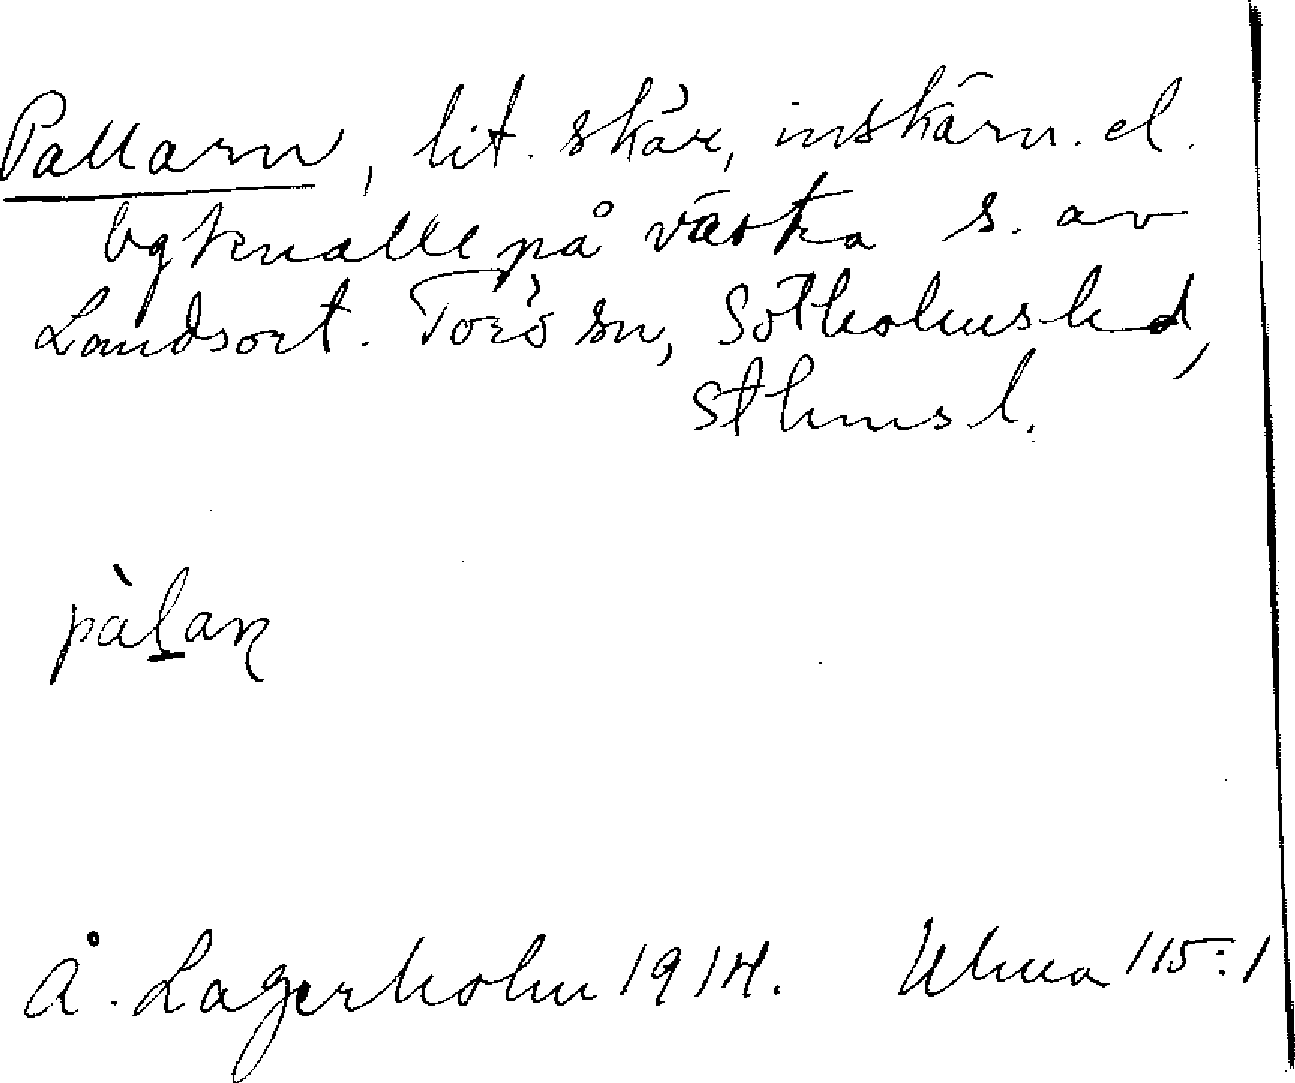 Pallarn, lit. skär, inskärn. el.
bgknalle på västra s. av
Landsort. Torö sn, Sotholms hd,
Sthms l.
pàlaɳ
Å. Lagerholm 1914. Ulma 115:1